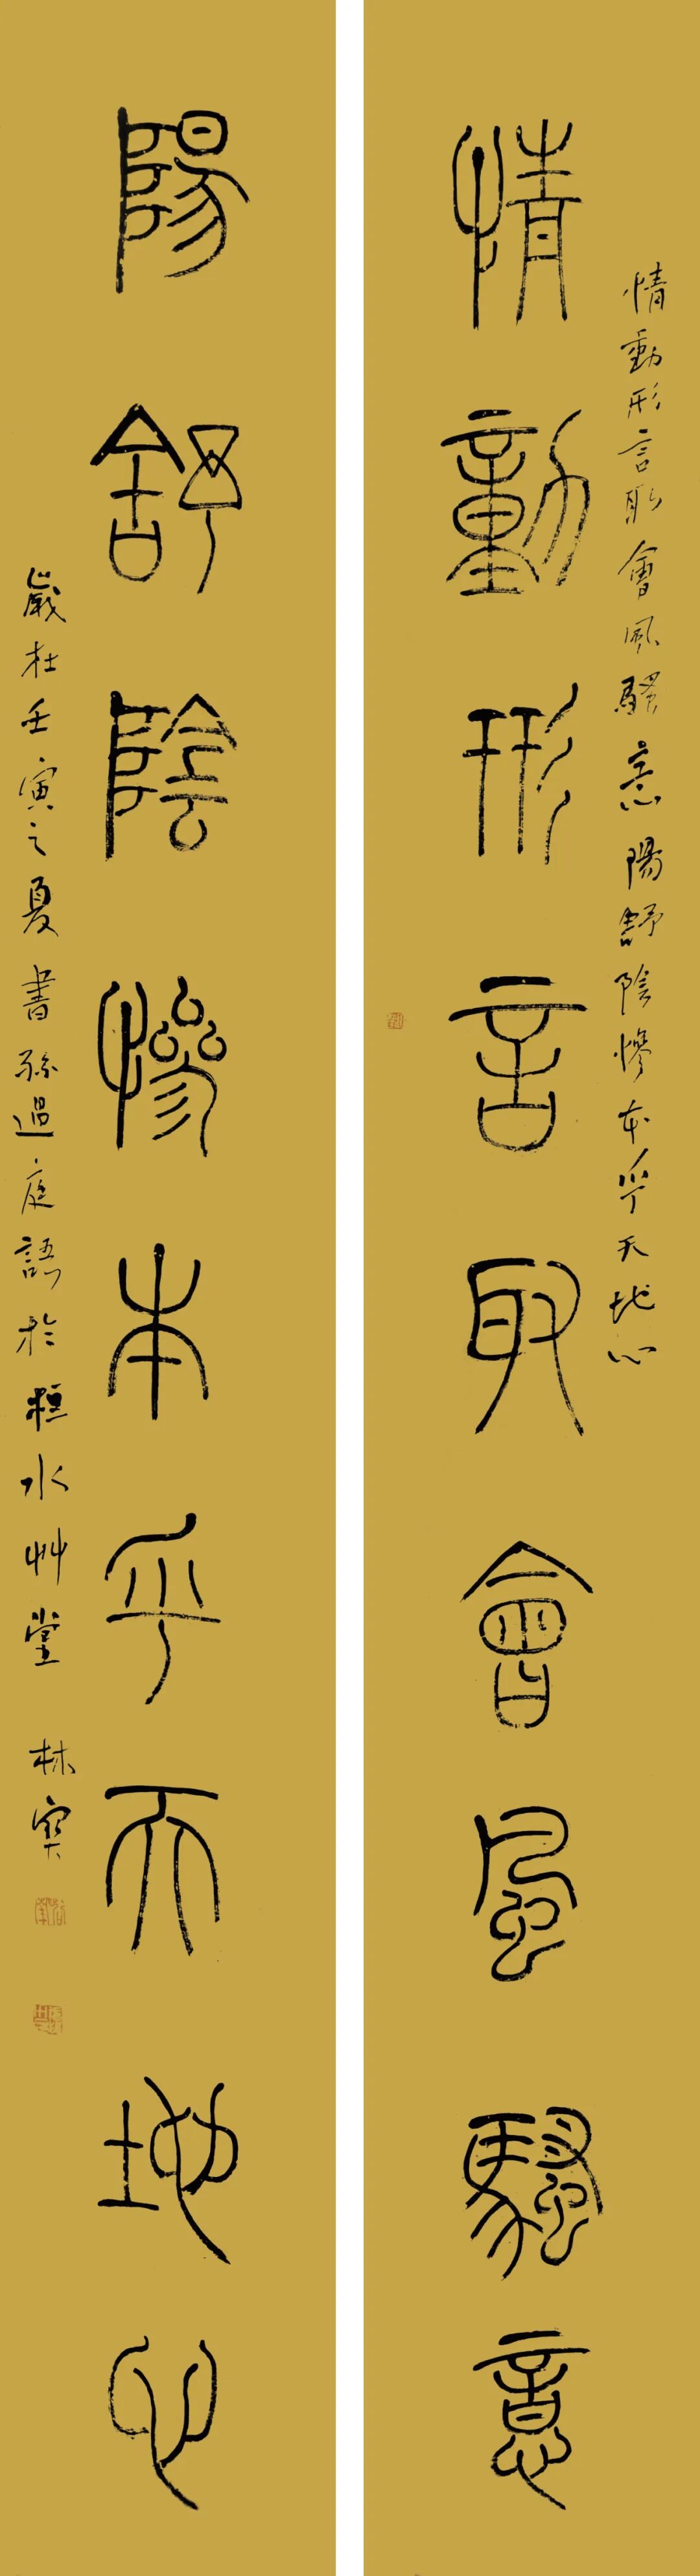 情動形言取會風騷意陽舒陰慘本乎天地心
情動形言取會風騷意
陽舒陰慘本乎天地心
歲在壬寅之夏書孫過庭語於桓水艸堂 林